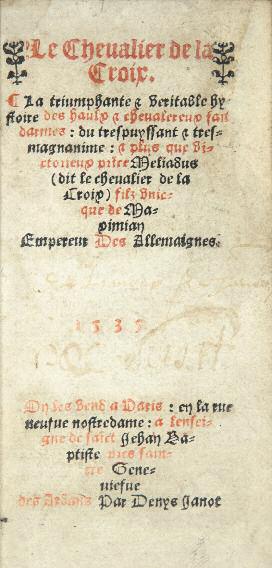 Le Chevalier de la
Croix.
¶ La triumphante & veritable hy
stoire des haulx & chevalereux faitz
darmes : du trespuyssant & tres-
magnanime : & plus que vi-
ctorieux prince Meliadus
(dit le chevalier de la
Croix) filz vnic-
que de Ma-
ximian
Empereur Des Allemaignes.
1535
On les vend a Paris : en la rue
neufue nostredame : a lensei-
gne de saict Jehan Ba-
ptiste pres sain-
cte Gene-
uiefue
des Ardans Par Denys Janot